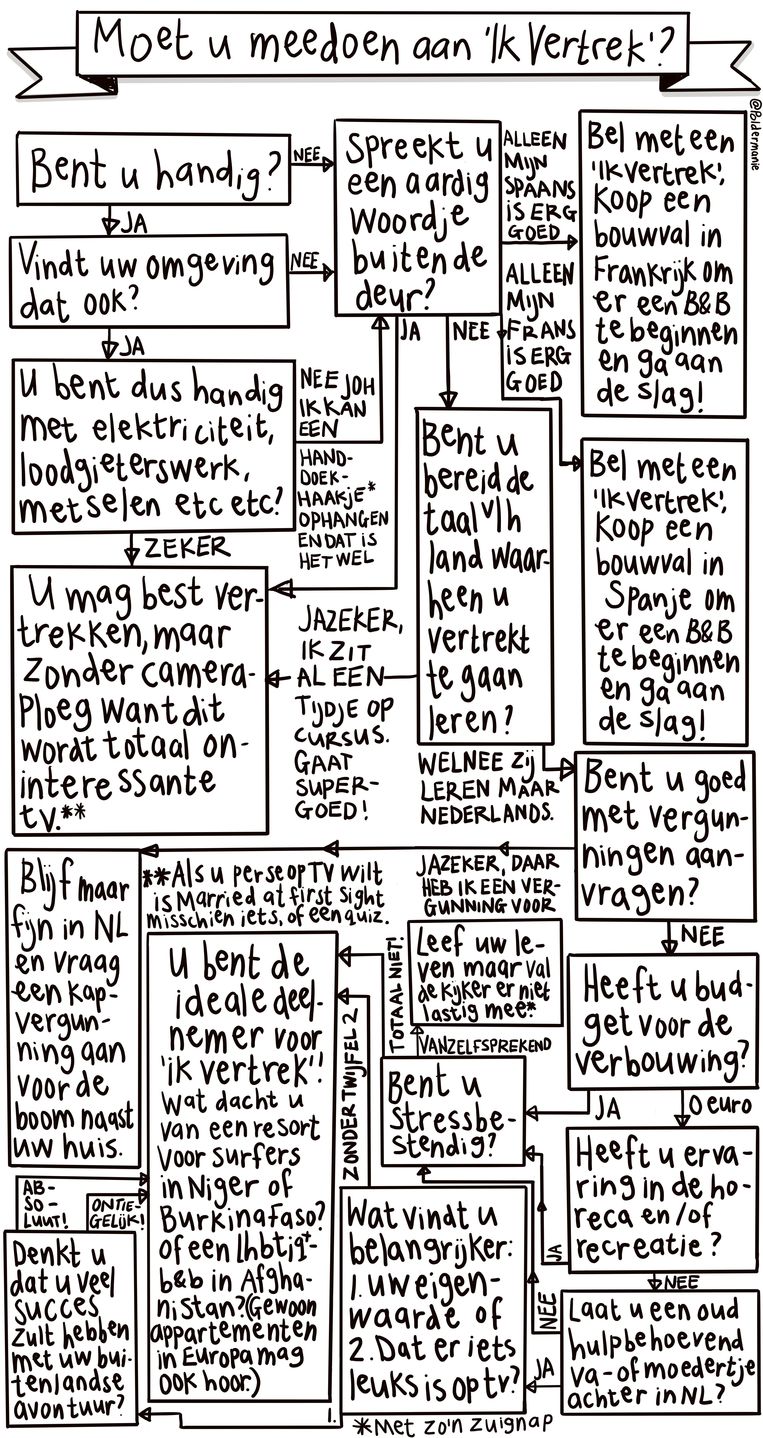 Moet u meedoen aan 'Ik Vertrek'?
@Poldermanie
Bent u handig?
NEE
JA
Spreekt u
een aardig
woordje
buiten de
deur?
ALLEEN
MIJN
SPAANS
IS ERG
GOED
Bel meteen
'Ik vertrek',
Koop een
bouwval in
Frankrijk om
er een B&B
te beginnen
en ga aan
de slag!
Vindt uw omgeving
dat ook?
NEE
JA
ALLEEN
MIJN
FRANS
IS ERG
GOED
JA
NEE
U bent dus handig
met elektriciteit,
loodgieterswerk,
metselen etc etc?
NEE JOH
IK KAN
EEN
HAND-
DOEK-
HAAKJE*
OPHANGEN
EN DAT IS
HET WEL
ZEKER
Bent u
bereid de
taal v/h
land waar-
heen u
vertrekt
te gaan
leren?
Bel meteen
'Ik vertrek',
Koop een
bouwval in
Spanje om
er een B&B
te beginnen
en ga aan
de slag!
U mag best ver-
trekken, maar
zonder camera-
ploeg want dit
wordt totaal on-
interessante
tv.**
JAZEKER,
IK ZIT
AL EEN
TIJDJE OP
CURSUS.
GAAT
SUPER-
GOED!
WELNEE ZIJ
LEREN MAAR
NEDERLANDS.
Bent u goed
met vergun-
ningen aan-
vragen?
JAZEKER, DAAR
HEB IK EEN VER-
GUNNING VOOR
NEE
Blijf maar
fijn in NL
en vraag
een kap-
vergun-
ning aan
voor de
boom naast
uw huis.
**Als u perse op TV wilt
is Married at first Sight
misschien iets, of een quiz.
U bent de
ideale deel-
nemer voor
'ik vertrek'!
Wat dacht u
van een resort
voor surfers
in Niger of
Burkina Faso?
of een lhbtiq+-
b&b in Afgha-
nistan? (Gewoon
appartementen
in Europa mag
ook hoor.)
TOTAAL NIET!
Leef uw le-
ven maar val
de kijker er niet
lastig mee*
VANZELFSPREKEND
Heeft u bud-
get voor de
verbouwing?
JA
0 euro
Bent u
stressbe-
stendig?
ZONDER TWIJFEL 2
Heeft u erva-
ring in de ho-
reca en/of
recreatie?
JA
NEE
AB-
SO-
LUUT!
ONTIE-
GELIJK!
Denkt u
dat u veel
succes
zult hebben
met uw bui-
tenlandse
avontuur?
Wat vindt u
belangrijker:
1. uw eigen-
waarde of
2. Dat er iets
leuks is op tv?
NEE
JA
Laat u een oud
hulpbehoevend
va- of moedertje
achter in NL?
1.
*Met zo'n zuignap